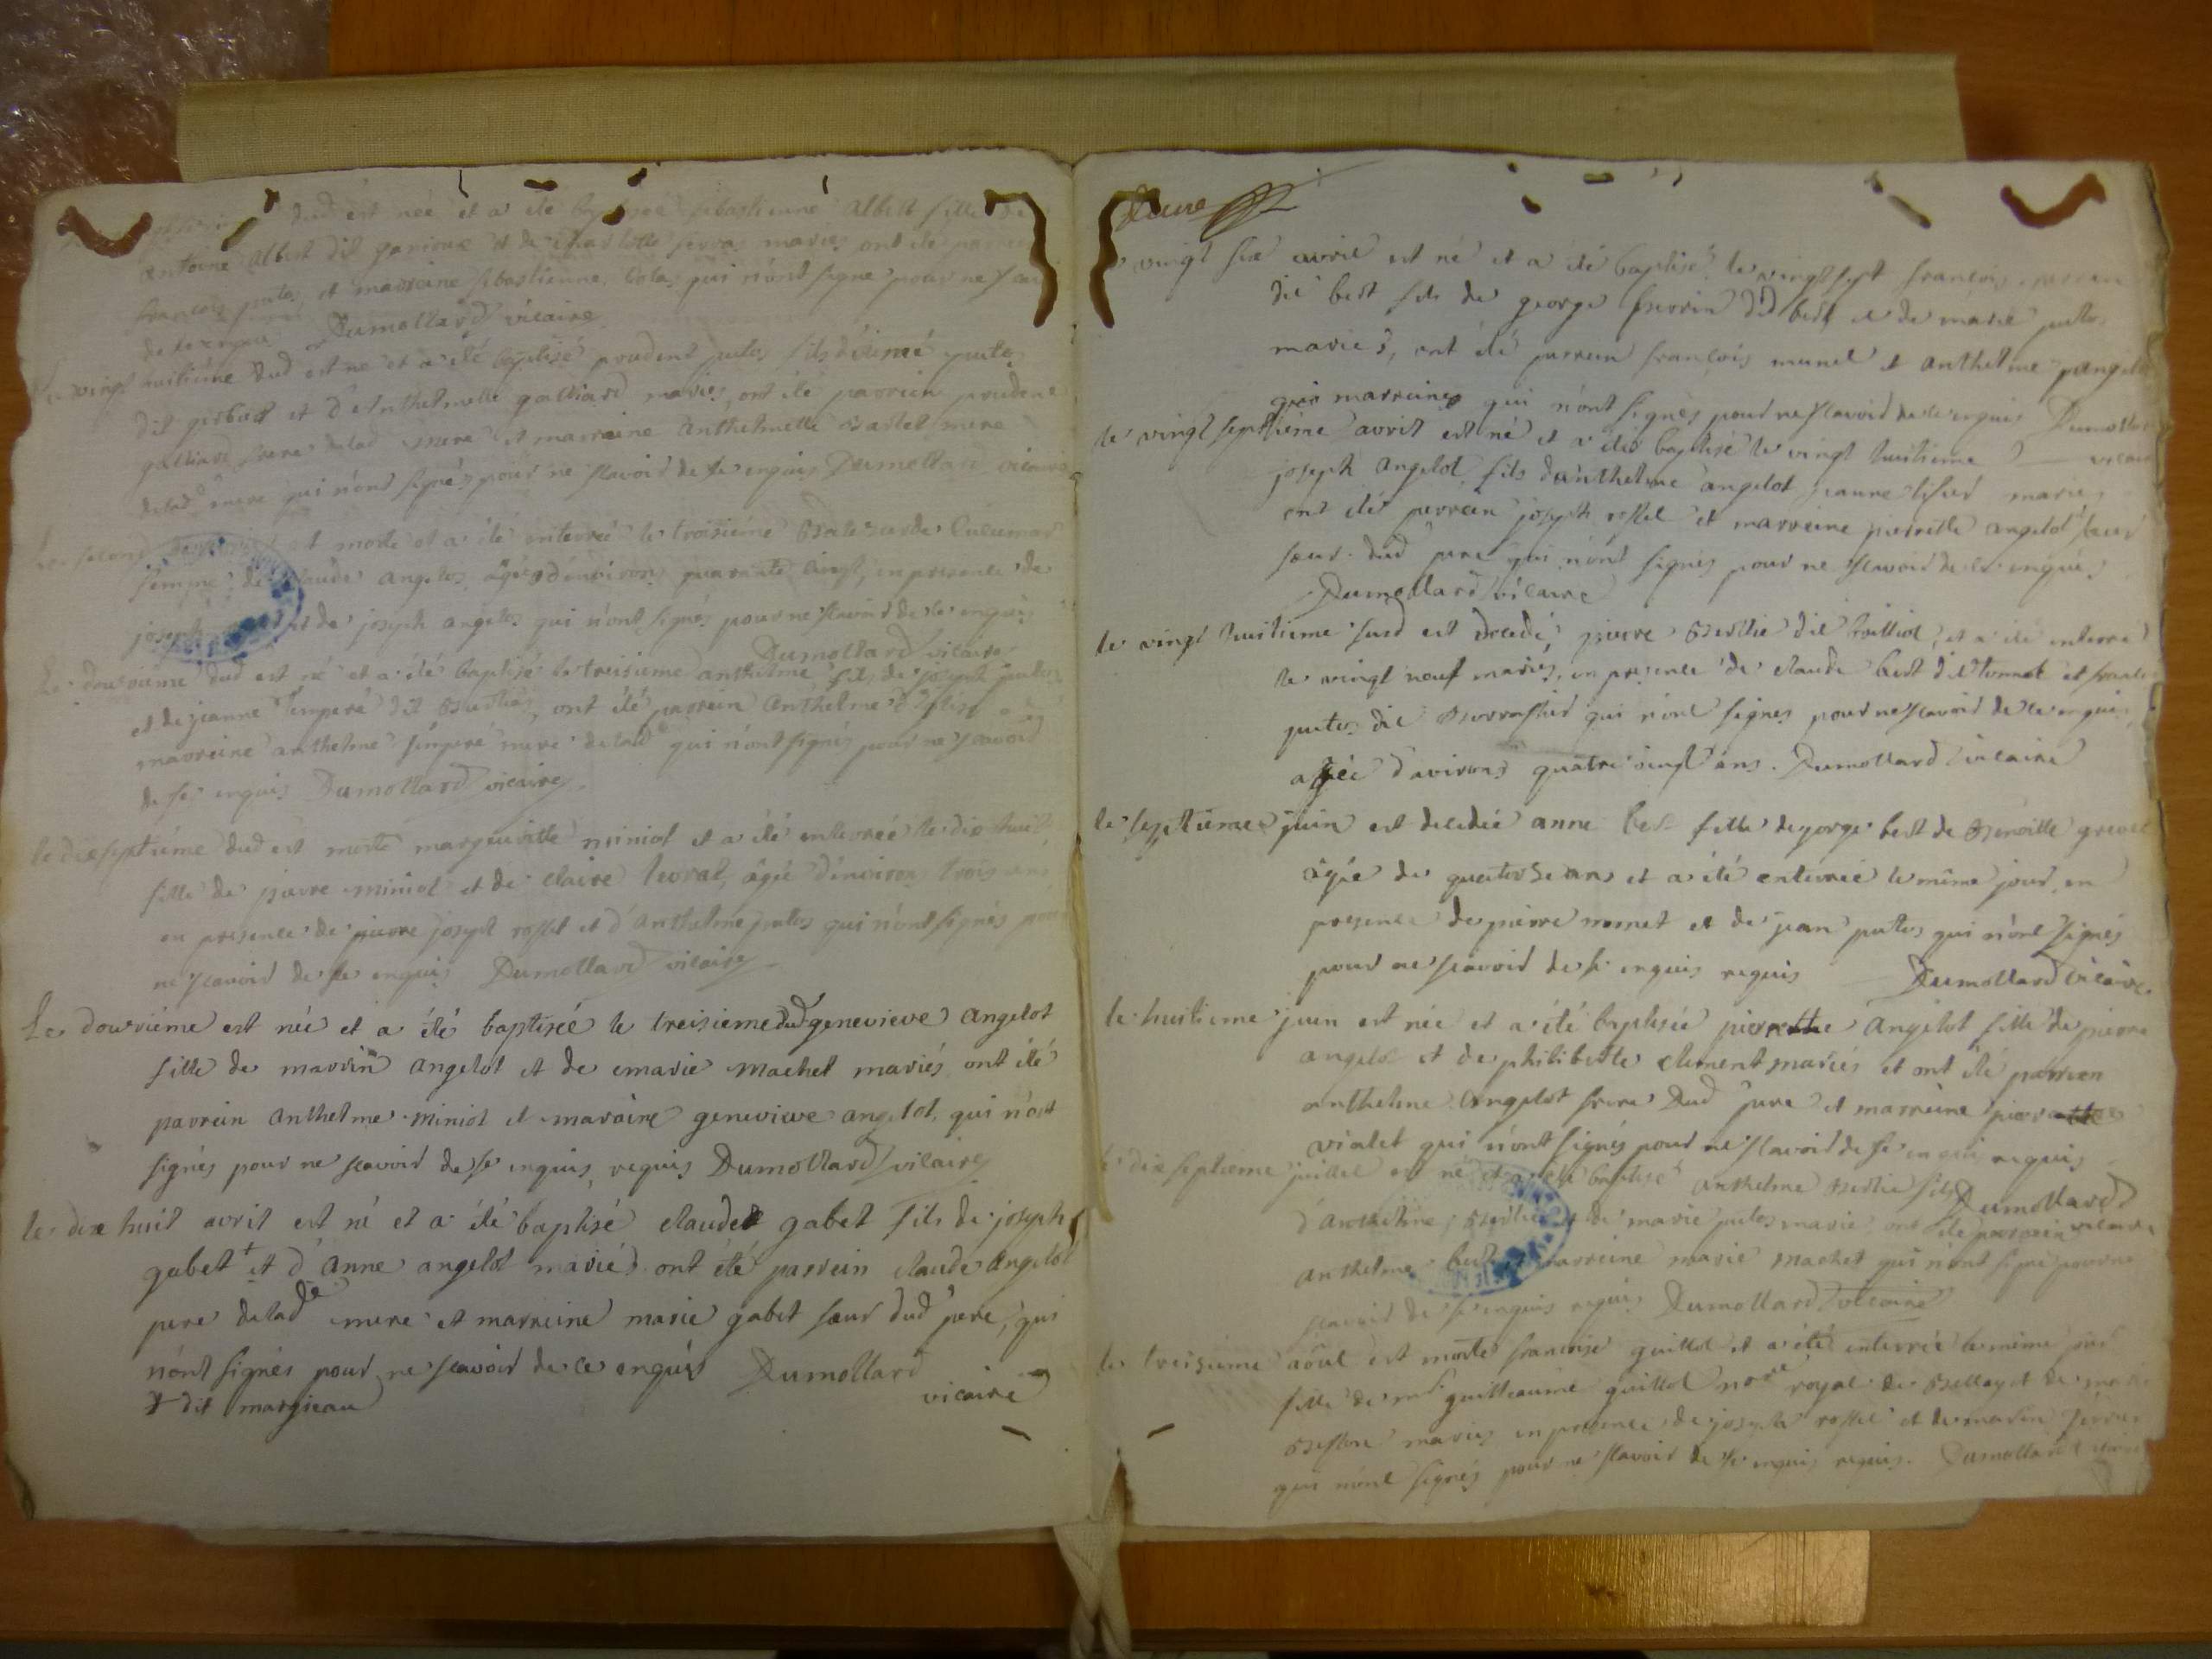 dud est née et a été baptisée sebastienne albert fille de
antoine albert dit ganioux et de charlotte servaz mariés ont été parrein
françois putos et marreine sebastienne colas qui n'ont signe pour ne scavoir
Dumollard vicaire
Le vingt huitième dud est né et a été baptisé prudent putos fils d'aimé putos
dit gerbaet et d'anthelmette galliard mariés, ont été parrein prudent
galliard frere delad mere et marreine anthelmette bartet mere
delad mere qui n'ont signés pour ne scavoir de ce enquis Dumollard vicaire
Le second est morte et a été enterrée le troisième
femme de claude angelos agée d'environ quarante cinq, en presence de
joseph et de joseph angelos qui n'ont signés pour ne scavoir de ce enquis
Dumollard vicaire
Le douzième dud est né et a été baptisé le treisieme anthelme fils de joseph putos
et de jeanne semperé dit ont été parrein anthelme
marreine anthelme semperé mere delad qui n'ont signés pour ne scavoir
de ce enquis Dumollard vicaire
le dixseptième dud est morte margueritte miniot et a été enterrée le dix huit
fille de pierre miniot et de claire levrat, âgée d'environ trois ans
en presence de pierre joseph rosset et d'anthelme putos qui n'ont signés pour
ne scavoir de ce enquis Dumollard vicaire
Le douzième est née et a été baptisée le treisieme dud genevieve angelot
fille de marrin angelot et de marie machet mariés ont été
parrein anthelme miniot et maraine genevieve angelot, qui n'ont
signés pour ne scavoir de ce enquis, requis Dumollard vicaire
le dix huit avril est né et a été baptisé claudet gabet fils de joseph
gabet + et d'anne angelot mariés ont été parrein claude angelot
pere delad^e mere et marreine marie gabet sœur dud pere, qui
n'ont signés pour ne scavoir de ce enquis Dumollard
+ dit margieau vicaire
le vingt six avril est né et a été baptisé le vingt sept françois perrin
dit best fils de george perrin dit best et de marie putos
mariés, ont été parrein françois munet et anthelme pangelot
marreine qui n'ont signés pour ne scavoir de ce enquis Dumollard
le vingt septième avril est né et a été baptisé le vingt huitieme vicaire
joseph angelot fils d'anthelme angelot jeanne mariés
ont été parrein joseph rosset et marreine pierrette angelot sœur
sœur dud pere qui n'ont signés pour ne scavoir de ce enquis
Dumollard vicaire
le vingt huitieme susd est decedé, pierre berthet dit et a été enterré
le vingt neuf mariés, en presence de claude best dit tonnet et francois
putos dit qui n'ont signes pour ne scavoir de ce enquis,
agée d'avirons quatre vingt ans. Dumollard vicaire
le septiemes juin est decedée anne best fille de george best de benoitte
âgée de quatorse ans et a été enterrée le même jour en
presence de pierre monnet et de jean putos qui n'ont signés
pour ne scavoir de ce enquis requis Dumollard vicaire
le huitieme juin est née et a été baptisée pierrette angelot fille de pierre
angelot et de philiberte clement mariés et ont été parrien
anthelme angelot frere dud pere et marreine pierrette
vialet qui n'ont signés pour ne scavoir de ce enquis requis
Dumollard
le dix septieme juillet est né et a été baptisé anthelme fils
d'anthelme et de marie putos mariés ont été parrein vicaire
anthelme best et marreine marie machet qui n'ont signé pour ne
scavoir de ce enquis requis Dumollard vicaire
le treisieme août est morte françoise guillot et a été enterrée le même jour
fille de m^r guilleaume guillot no^re royal de bellay et de
mariés en presence de joseph rosset et de
qui n'ont signés pour ne scavoir de ce enquis requis. Dumollard vicaire